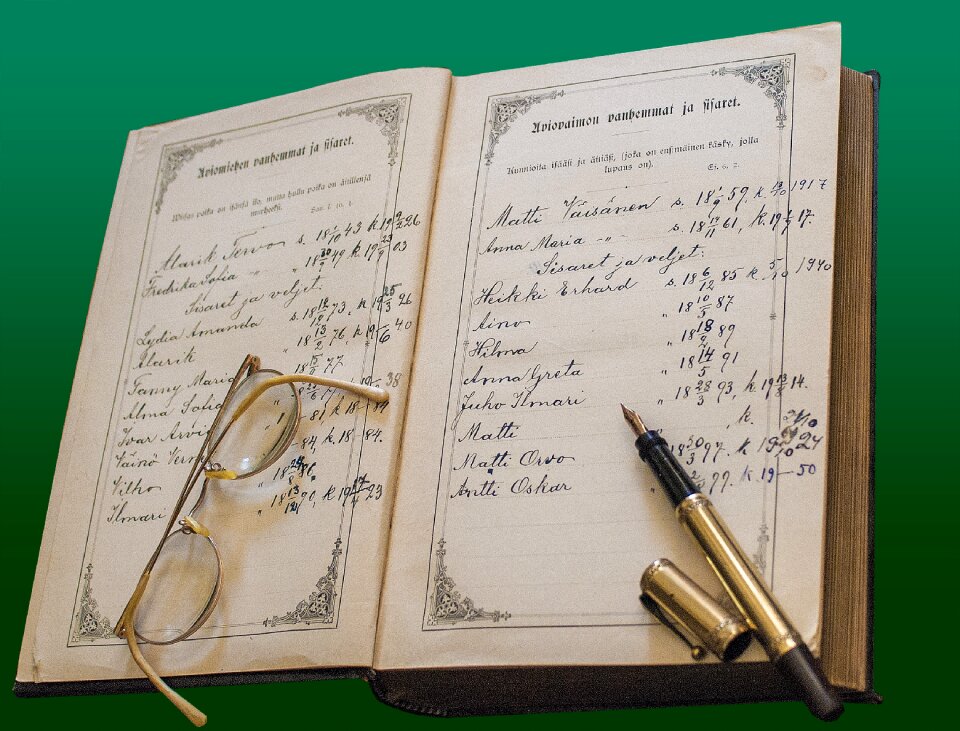 Aviomiehen vanhemmat ja sisaret.
Wiisas poika on isänsä ilo, mutta hullu poika on äitillensä
murheeksi. San. l. 10, 1.
Alarik Tervo s. 18 1/10 43 k 19 9/2 26
Fredrika Sofia -"- " 18 30/9 49 k. 19 23/9 03
Sisaret ja veljet:
Lydia Amanda s. 18 12/12 73, k. 19 25/3 26
Alarik " 18 13/2 76 k 19 – 40
Fanny Maria 77.
Alma Sofia 38
Ivar Arvi – 81 k 18 – 84
Väinö – 84, k. 18 – 84.
Vilho " 18
Ilmari " 18 90, k 19 23
Aviovaimon vanhemmat ja sisaret.
Kunnioita isääsi ja äitiäsi, (joka on ensimäinen käsky, jolla
lupaus on). Ef. 6, 2.
Matti Väisänen s. 18 1/9 59, k. 1917
Anna Maria -"- s. 18 19/11 61, k. 19 17.
Sisaret ja veljet:
Heikki Erhard s. 18 6/12 85 k. 5/10 1940
Aino " 18 10/5 87
Hilma " 18 89
Anna Greta " 18 14/5 91
Juho Ilmari " 18 28/3 93, k. 19 13/8 14.
Matti " k.
Matti Orvo 18 30/3 97. k 19 24
Antti Oskar " 99. k. 19 – 50